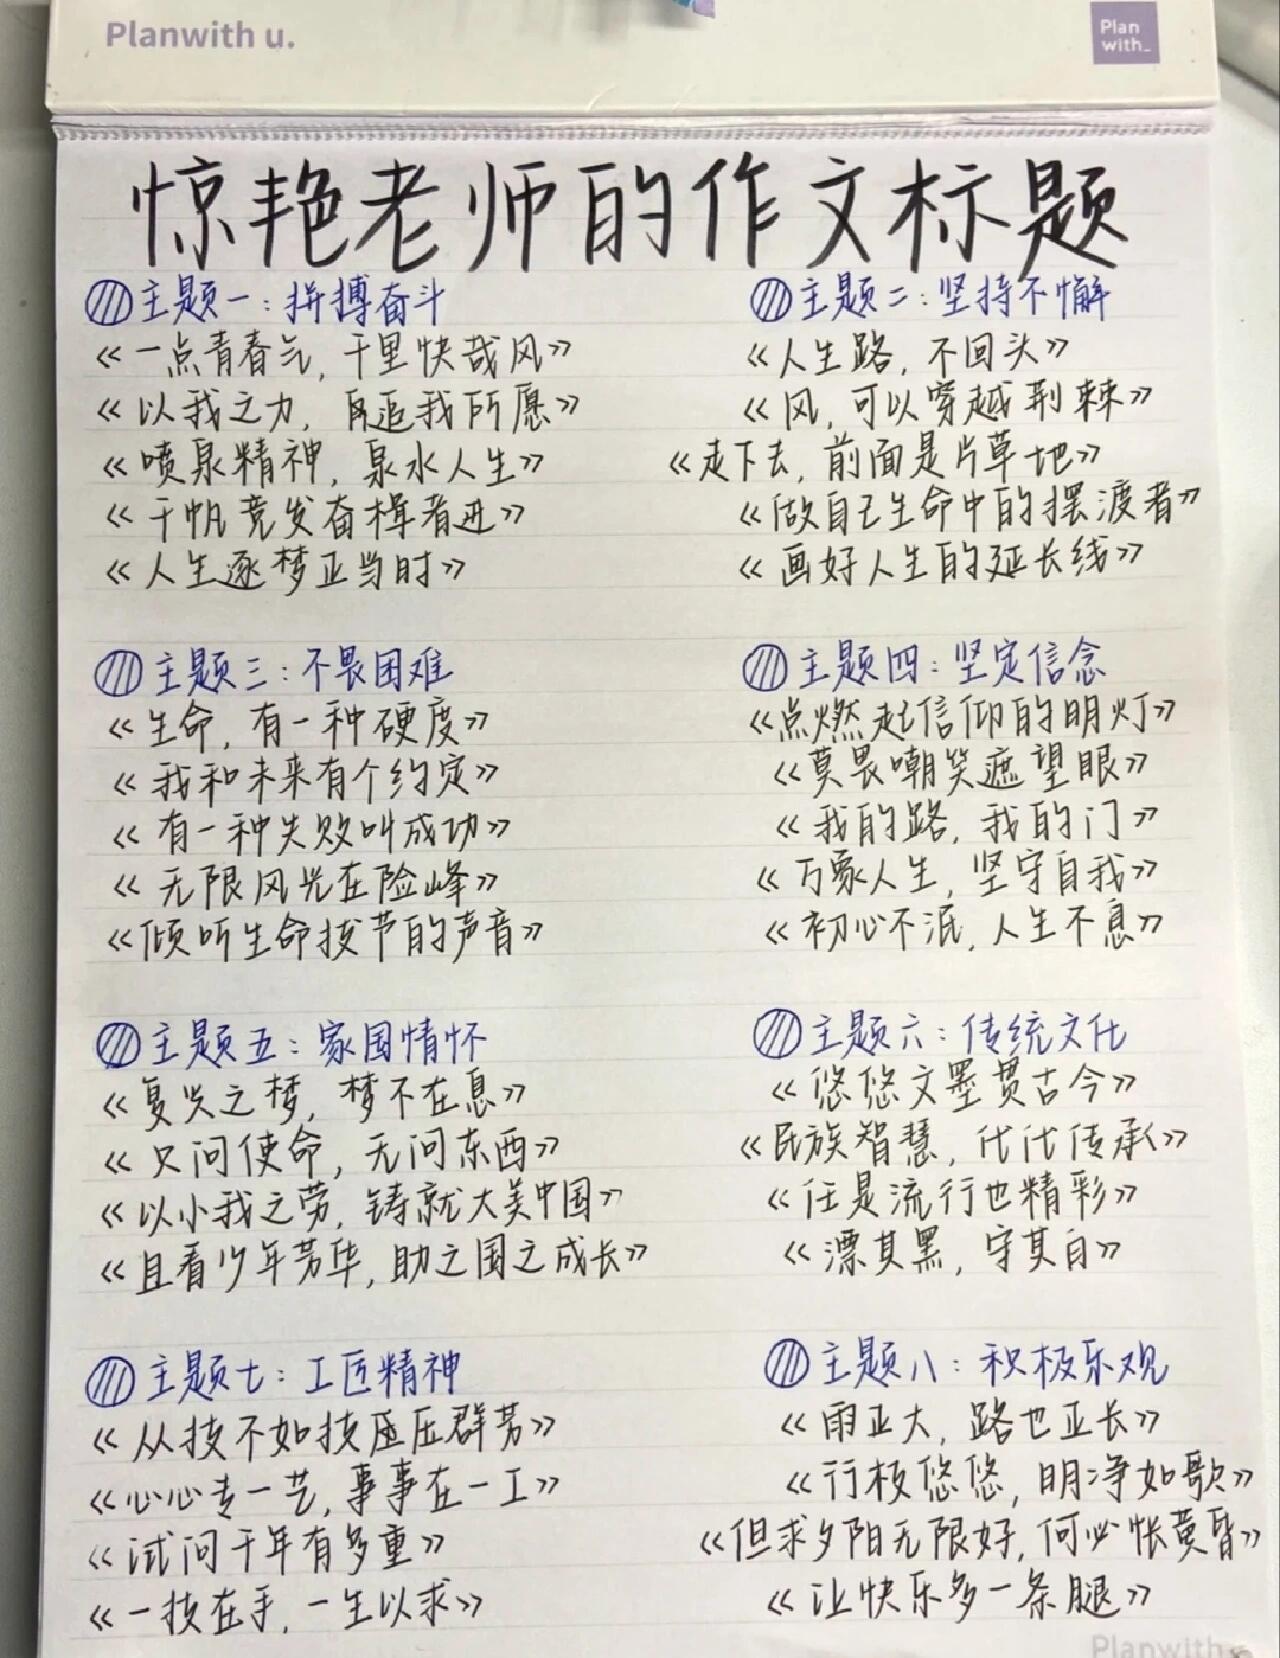 Planwith u.
Plan
with_
惊艳老师的作文标题
主题一：拼搏奋斗
《一点青春气，千里快哉风》
《以我之力，再追我所愿》
《喷泉精神，泉水人生》
《千帆竞发奋楫者进》
《人生逐梦正当时》
主题二：坚持不懈
《人生路，不回头》
《风，可以穿越荆棘》
《走下去，前面是片草地》
《做自己生命中的摆渡者》
《画好人生的延长线》
主题三：不畏困难
《生命，有一种硬度》
《我和未来有个约定》
《有一种失败叫成功》
《无限风光在险峰》
《倾听生命拔节的声音》
主题四：坚定信念
《点燃起信仰的明灯》
《莫畏嘲笑遮望眼》
《我的路，我的门》
《万象人生，坚守自我》
《初心不泯，人生不息》
主题五：家国情怀
《复兴之梦，梦不在息》
《只问使命，无问东西》
《以小我之劳，铸就大美中国》
《且看少年芳华，助之国之成长》
主题六：传统文化
《悠悠文墨贯古今》
《民族智慧，代代传承》
《任是流行也精彩》
《漂其黑，守其白》
主题七：工匠精神
《从技不如技压群芳》
《心心专一艺，事事在一工》
《试问千年有多重》
《一技在手，一生以求》
主题八：积极乐观
《雨正大，路也正长》
《行板悠悠，明净如歌》
《但求夕阳无限好，何必怅黄昏》
《让快乐多一条腿》
Planwith